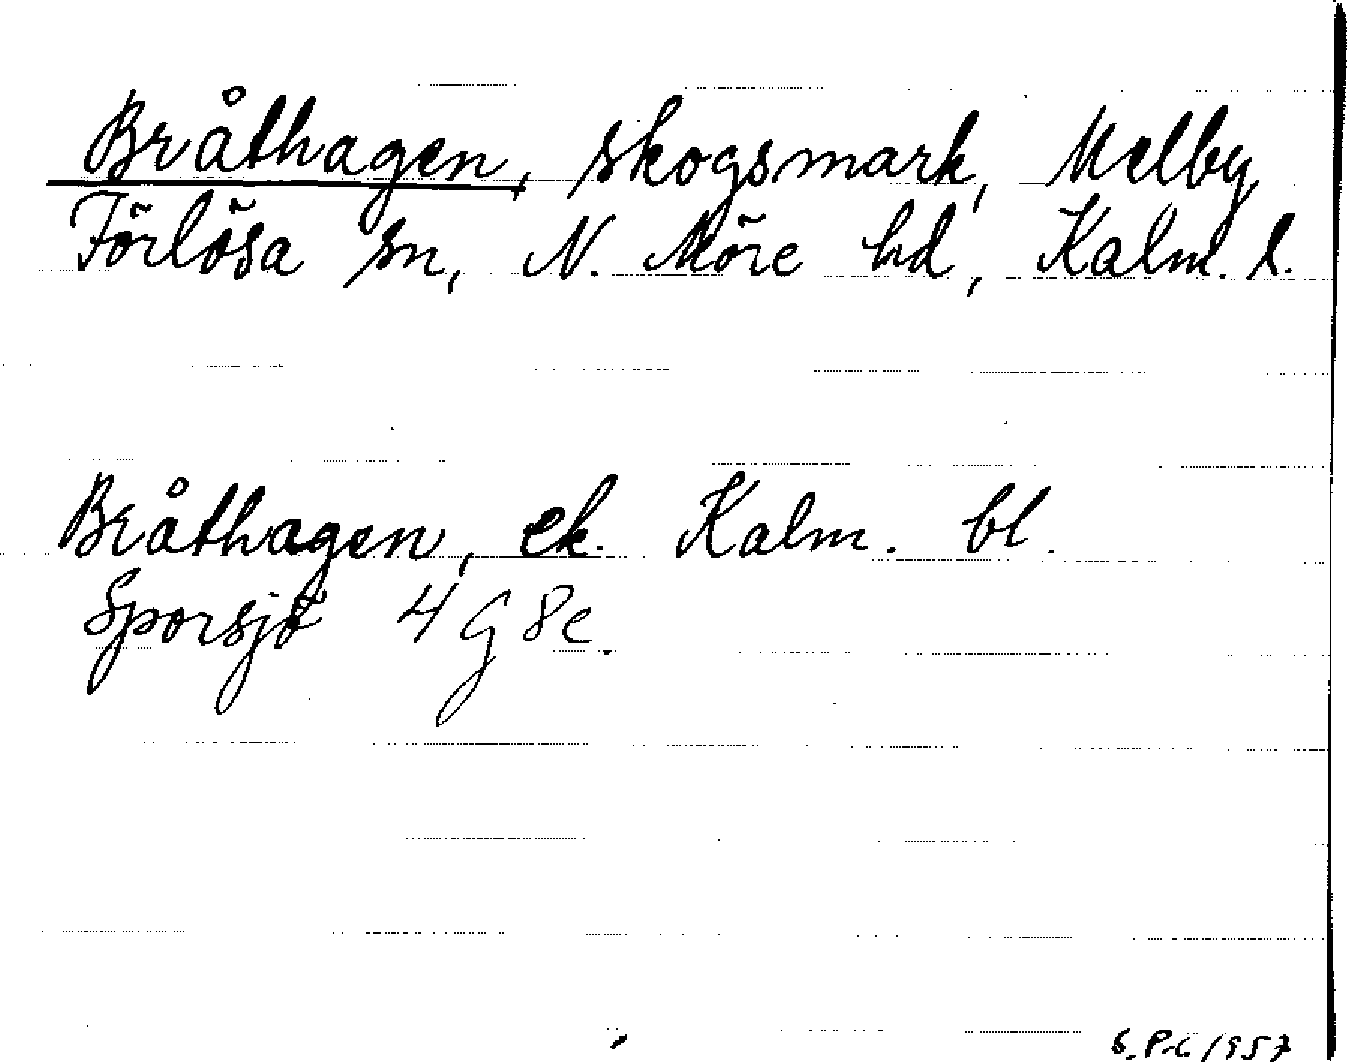 Bråthagen, skogsmark, Melby
Förlösa sn, N. Möre hd, Kalm. l.
Bråthagen, ek. Kalm. bl.
Sporsjö 4 G 8e.
1957